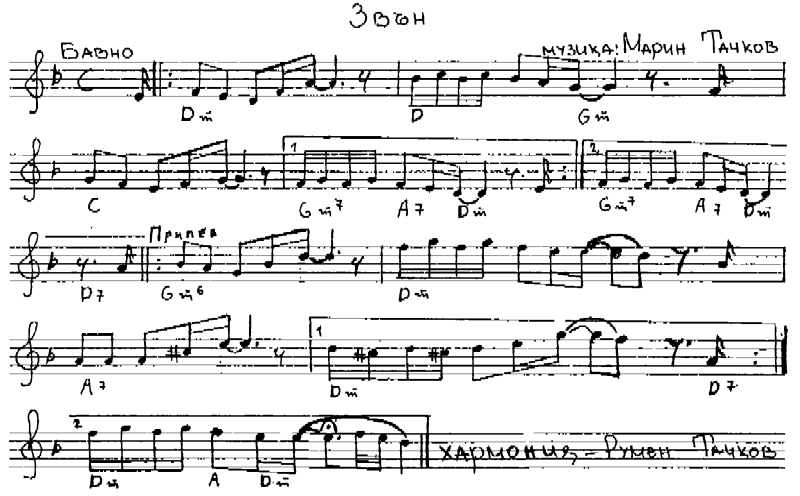 Звън
Бавно музика: Марин Тачков
Dm D Gm
1 2
C Gm7 A7 Dm Gm7 A7 Dm
Припев
D7 Gm6 Dm
1
A7 Dm D7
2
хармония – Румен Тачков
Dm A Dm